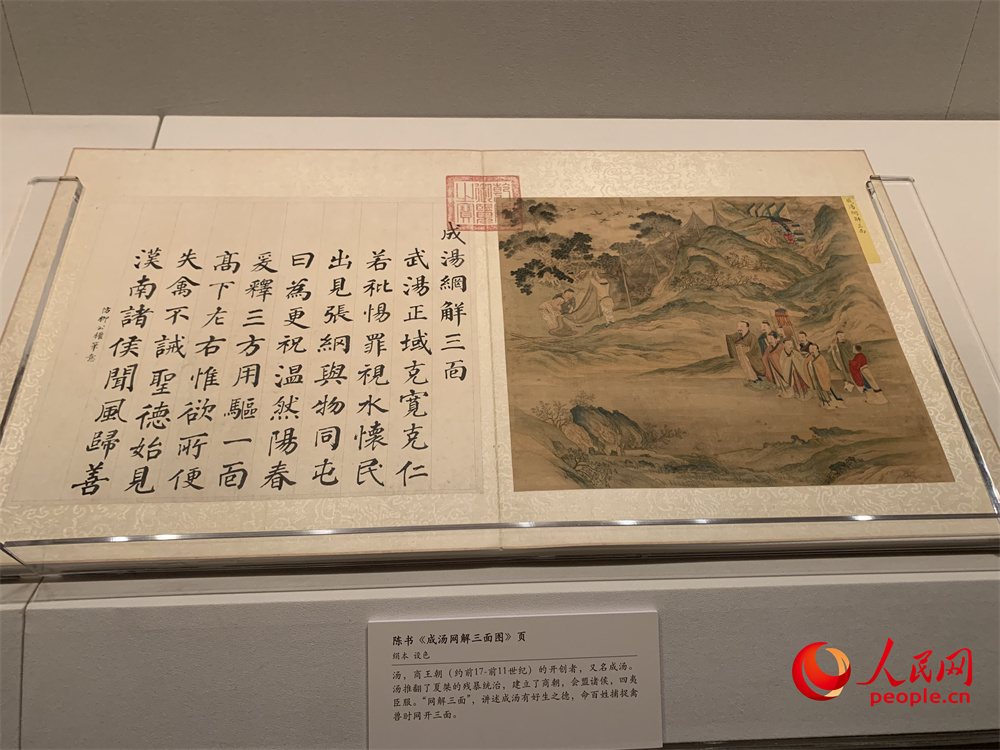 乾隆御覽之寶
成湯網解三面
成湯網解三面
武湯正域克寬克仁
若秕惕罪視水懷民
出見張網與物同屯
曰為更祝温然陽春
爰釋三方用驅一面
高下左右惟欲所便
失禽不誡聖德始見
漢南諸侯聞風歸善
柳公權筆意
陈书《成汤网解三面图》页
绢本 设色
汤，商王朝（约前17-前11世纪）的开创者，又名成汤。
汤推翻了夏桀的残暴统治，建立了商朝，会盟诸侯，四夷
臣服。“网解三面”，讲述成汤有好生之德，命百姓捕捉禽
兽时网开三面。
人民网
people.cn